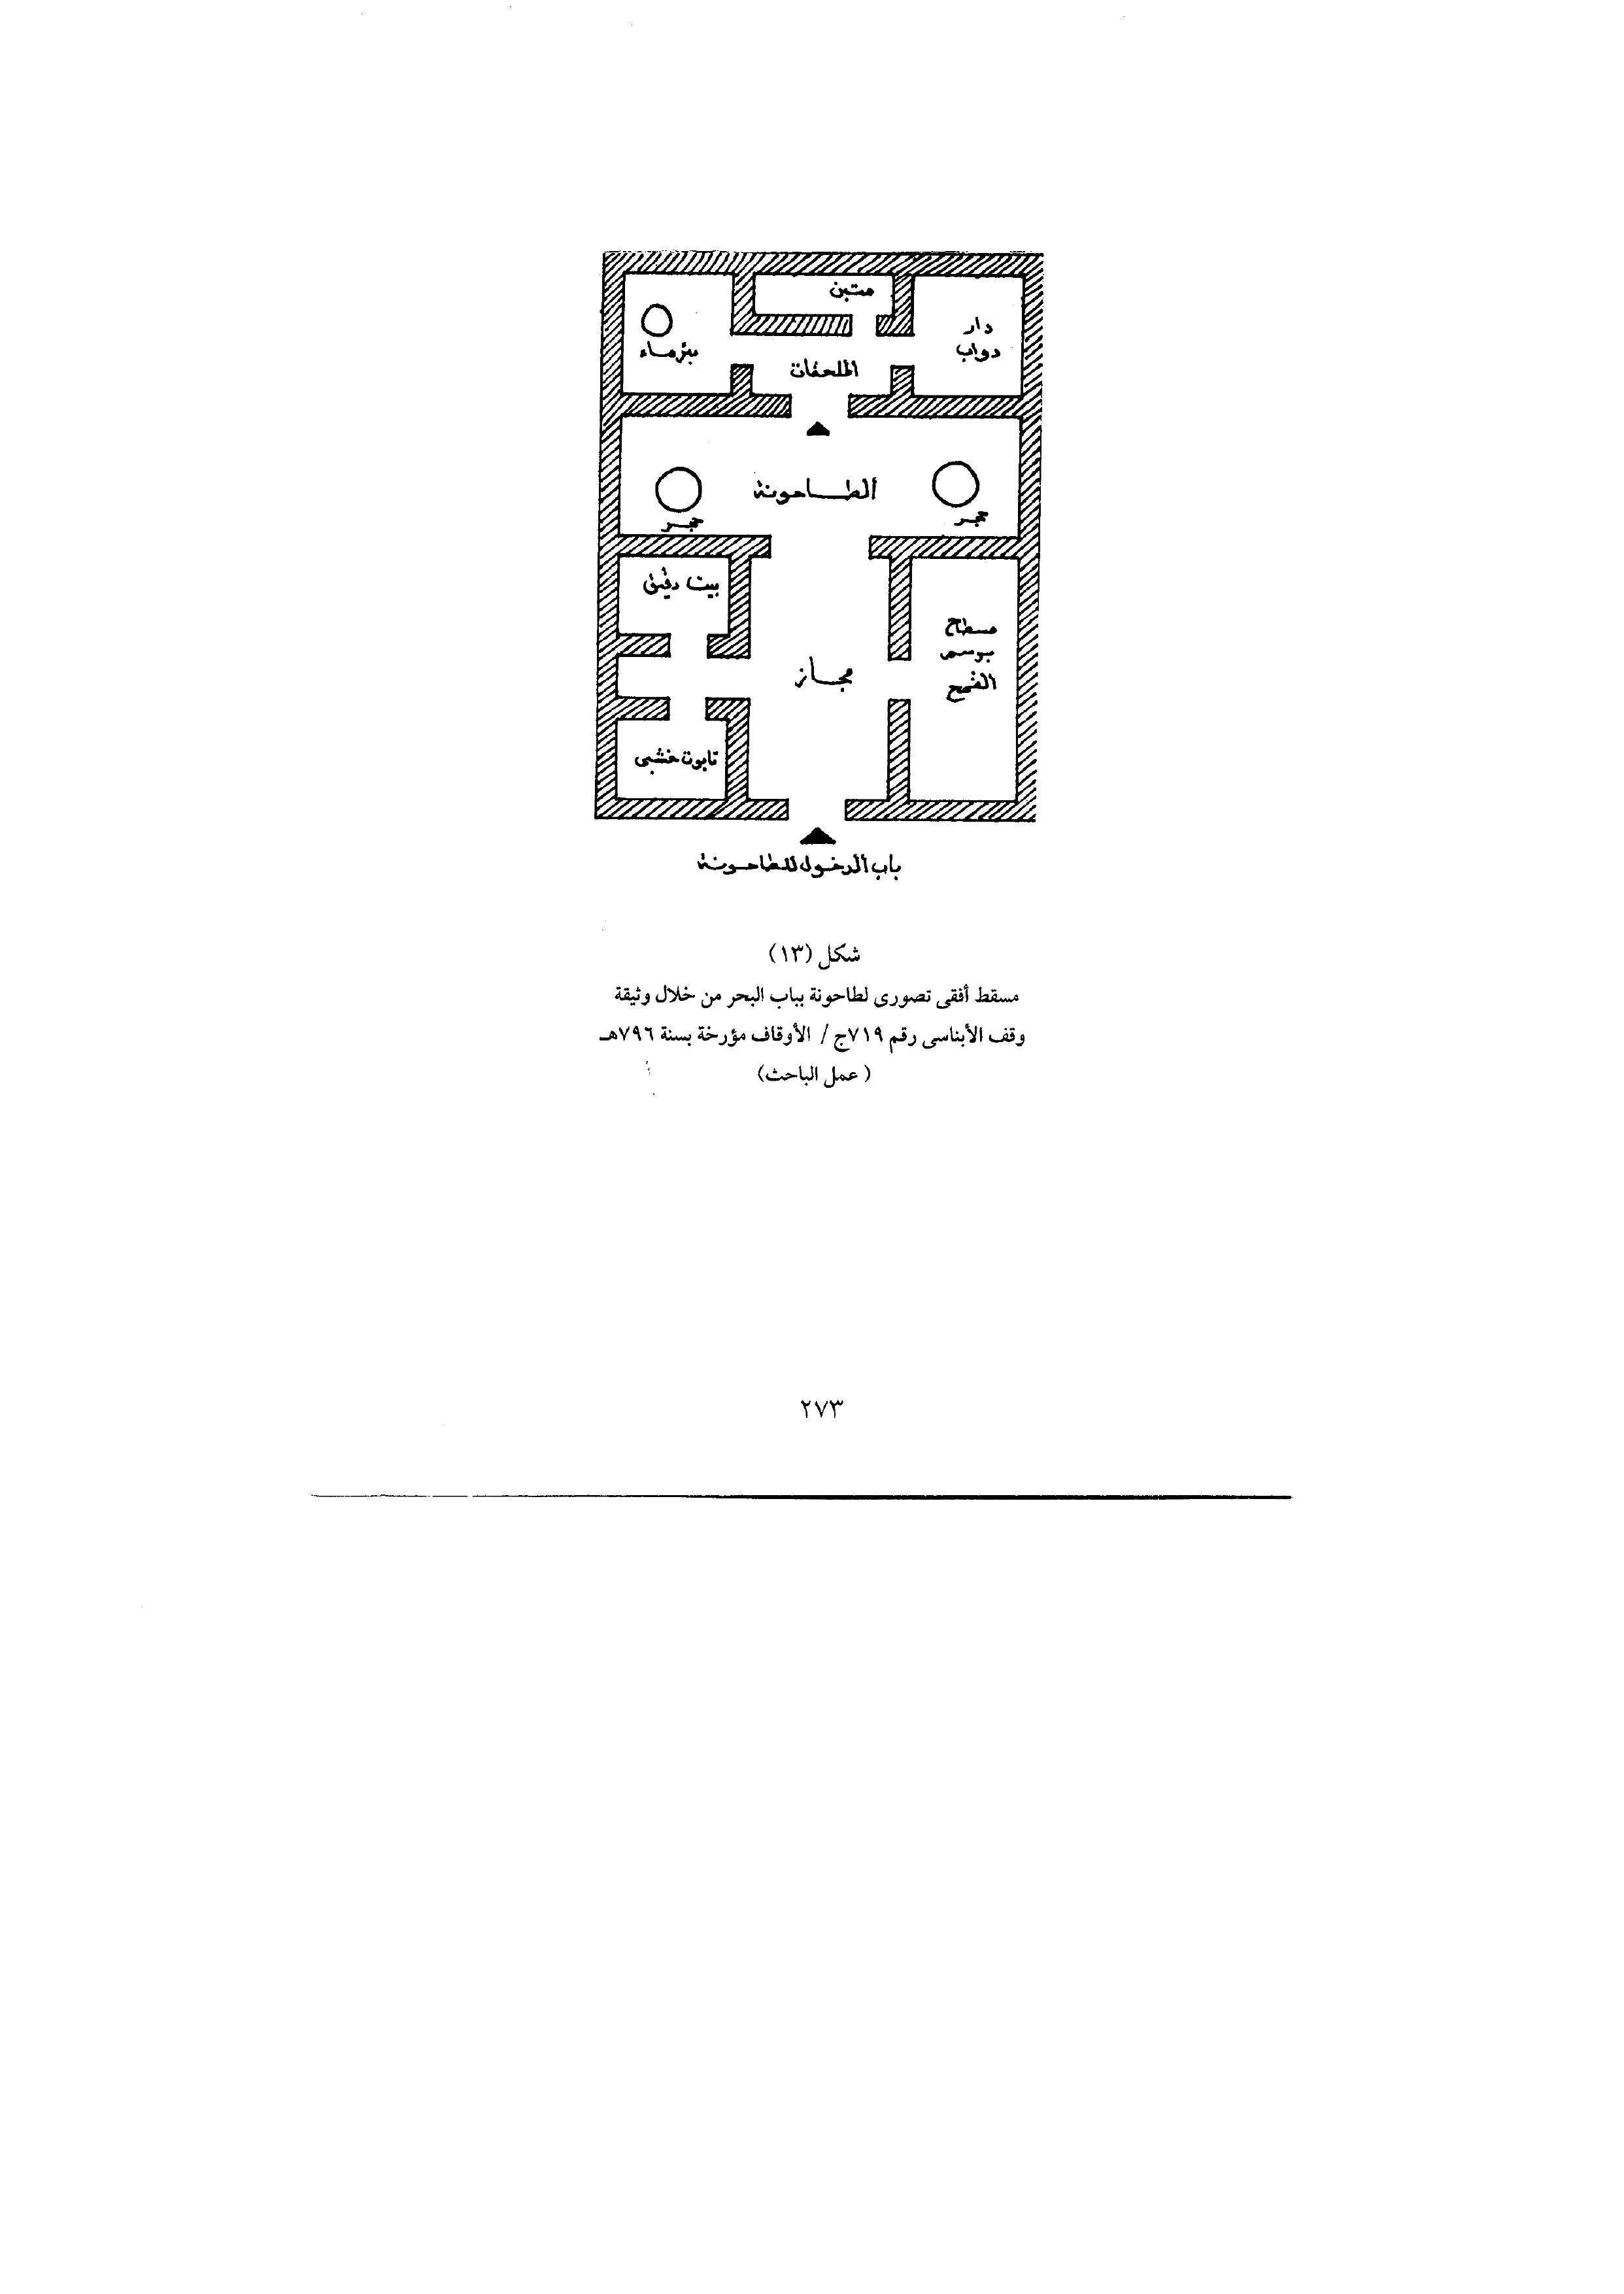 متبن
دار
دواب
بئر ماء
الملحقات
الطاحونة
حجر
حجر
بيت دقيق
مسطاح
برسم
القمح
مجاز
تابوت خشبى
باب الدخول للطاحونة
شكل (١٣)
مسقط أفقى تصورى لطاحونة بباب البحر من خلال وثيقة
وقف الأبناسى رقم ٧١٩ج / الأوقاف مؤرخة بسنة ٧٩٦هـ
( عمل الباحث)
٢٧٣